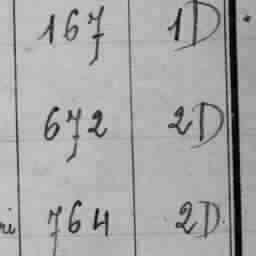 167 1D
672 2D
764 2D